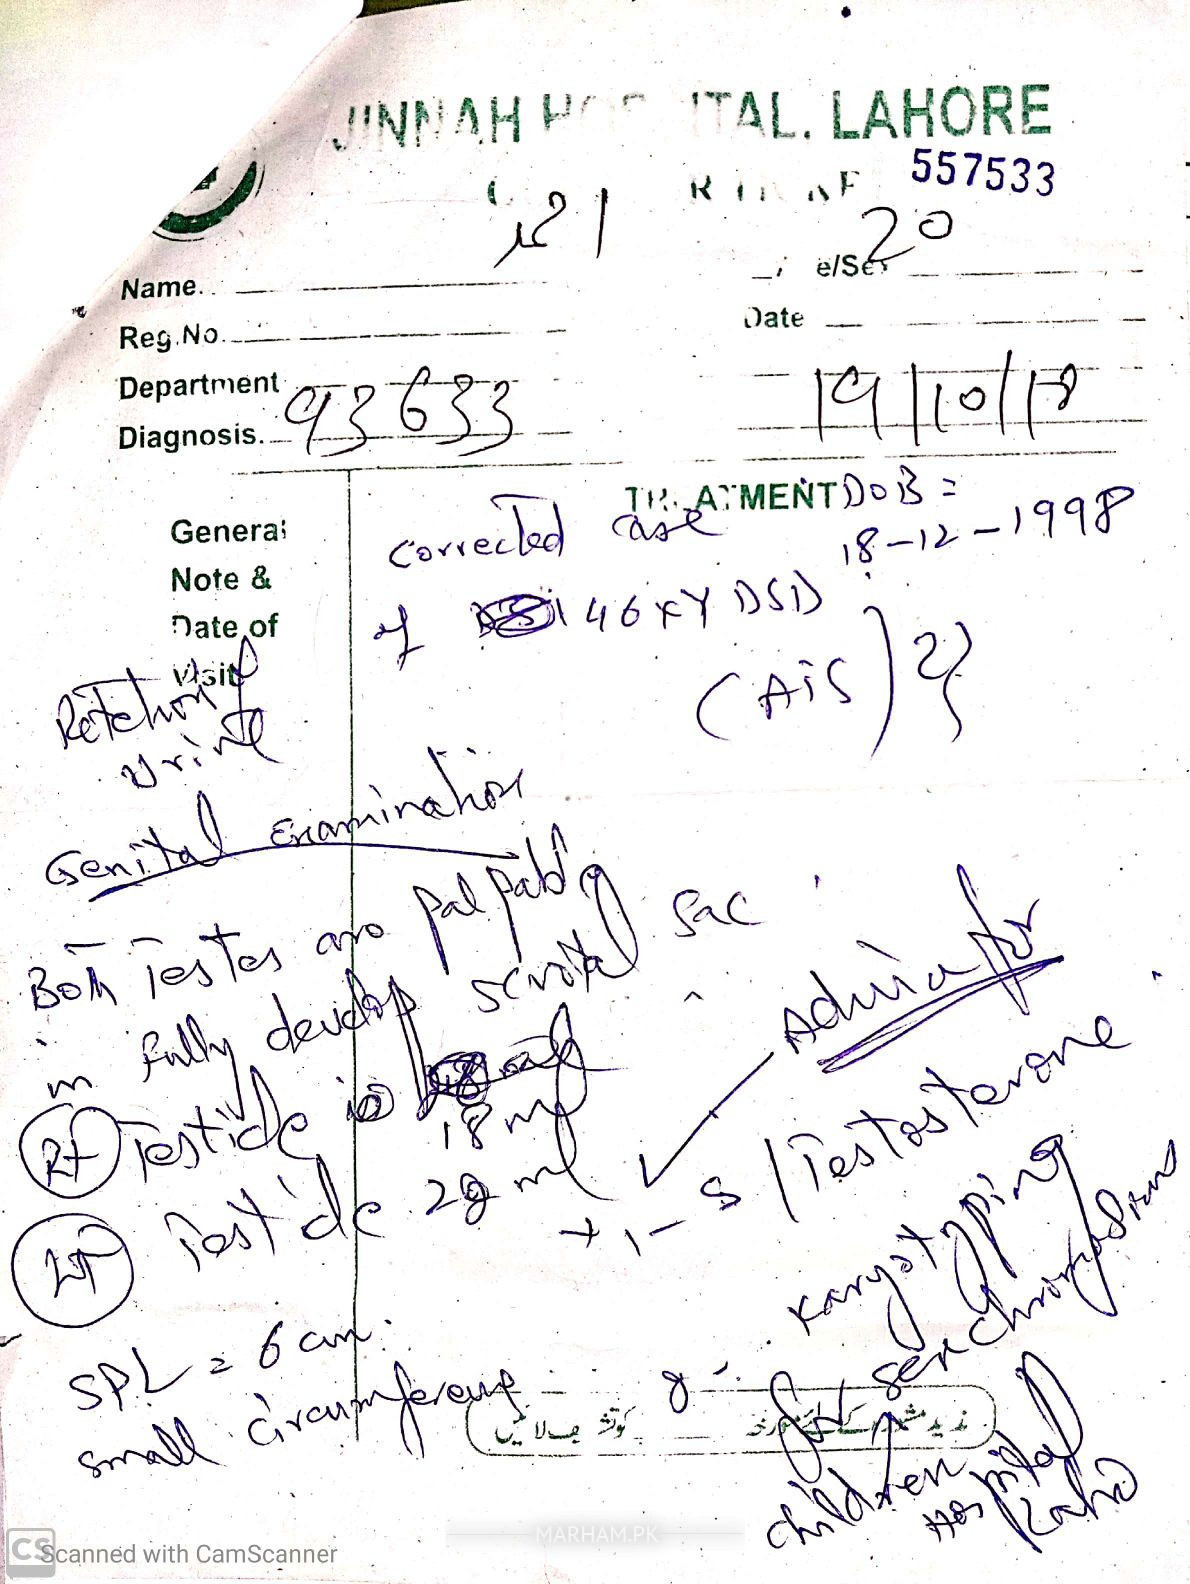 JINNAH HOSPITAL, LAHORE
557533
احمد
20
Name.
e/Sex
Reg.No.
Date
Department
93633
19/10/18
Diagnosis.
TREATMENT
DOB =
18-12-1998
General
Note &
Date of
visit
corrected case
of 46 XY DSD
(AIS) ??
Retention of
urine
Genital Examination
Both Testes are palpable
in fully develop scrotal sac
Rt Testicle is 18 ml
Lt Testicle 20 ml
SPL = 6 cm.
small circumference
for
1- S/Testosterone
2- Karyotyping
for sex chromosomes
children Hospital
مزید مشورہ کے لئے مورخہ
کو تشریف لائیں
MARHAM.PK
CS Scanned with CamScanner